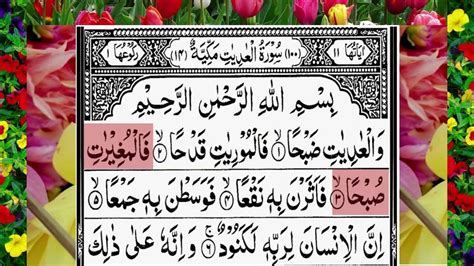 اٰیَاتُهَا ۱۱ (۱۰۰) سُوْرَةُ الْعٰدِیٰتِ مَكِّیَّةٌ (۱۴) رُكُوْعُهَا ۱
بِسْمِ اللّٰهِ الرَّحْمٰنِ الرَّحِیْمِ
وَالْعٰدِیٰتِ ضَبْحًا ۙ‏﴿۱﴾ فَالْمُوْرِیٰتِ قَدْحًا ۙ‏﴿۲﴾ فَالْمُغِیْرٰتِ
صُبْحًا ۙ‏﴿۳﴾ فَاَثَرْنَ بِهٖ نَقْعًا ۙ‏﴿۴﴾ فَوَسَطْنَ بِهٖ جَمْعًا ۙ‏﴿۵﴾
اِنَّ الْاِنْسَانَ لِرَبِّهٖ لَكَنُوْدٌ ۚ‏﴿۶﴾ وَاِنَّهٗ عَلٰی ذٰلِكَ